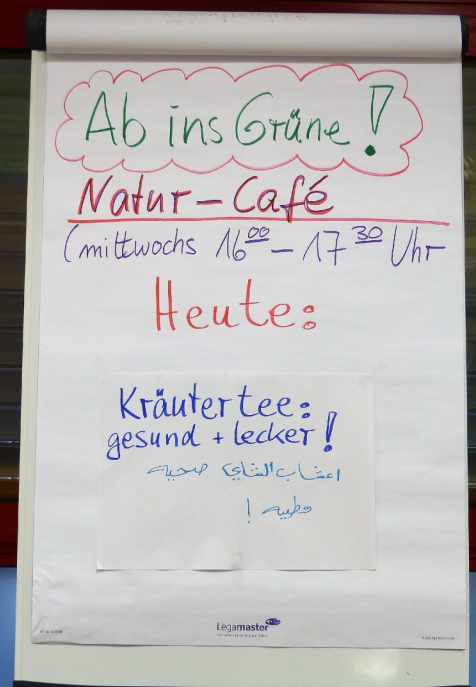 Ab ins Grüne!
Natur-Café
(mittwochs 16⁰⁰ - 17³⁰ Uhr
Heute:
Kräutertee:
gesund + lecker!
اعشاب الشاي صحية
وطيبه !
Legamaster